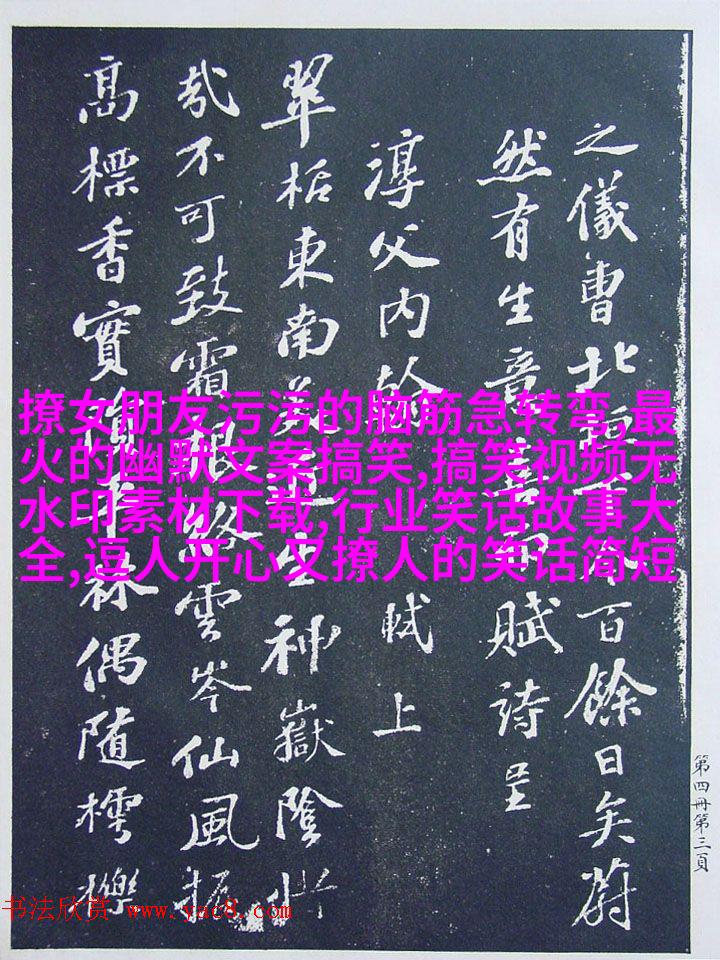 撩女朋友污污的脑筋急转弯,最
火的幽默文案搞笑,搞笑视频无
水印素材下载,行业笑话故事大
全,逗人开心又撩人的笑话简短
之儀曹北百餘日矣蔚
然有生意而賦詩呈
淳父內翰 軾上
翠栝東南美近生神嶽陰惜
哉不可致霜根絡雲岑仙風振
高標香實平林偶隨樗櫟
第四冊第三頁
书法欣赏 www.yac8.com